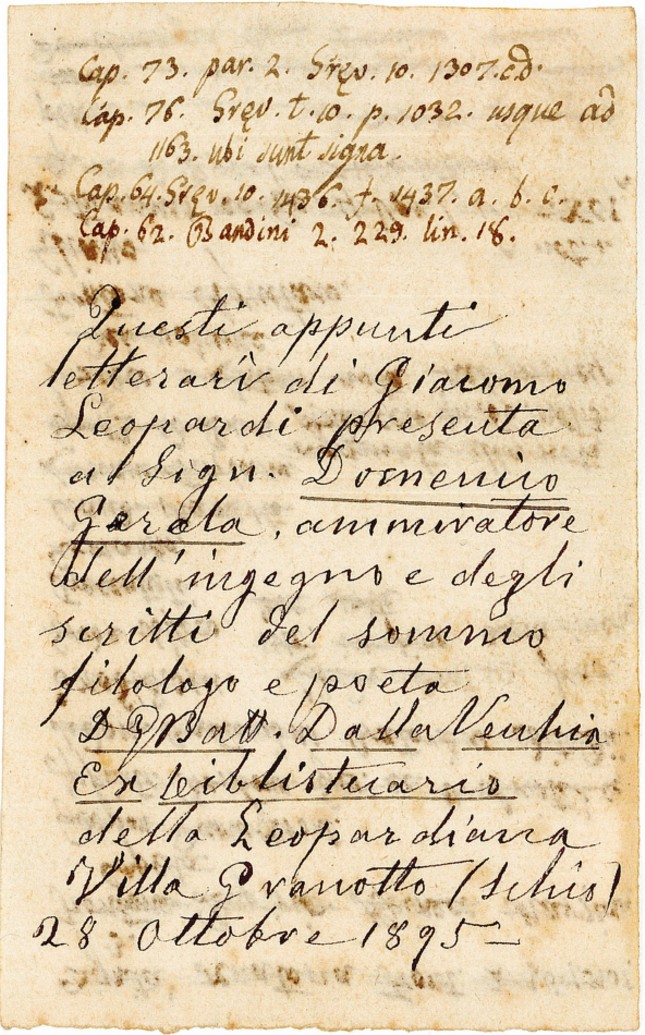 Cap. 73. par. 2. Gręv. 10. 1307. c.d.
Cap. 76. Gręv. t. 10. p. 1032. usque ad
1163. ubi sunt signa.
Cap. 64. Gręv. 10. 1436. f. 1437. a. b. c.
Cap. 62. Bandini 2. 229. lin. 18.
Questi appunti
letterarî di Giacomo
Leopardi presenta
al Sign. Domenico
Gerola, ammiratore
dell'ingegno e degli
scritti del sommo
filologo e poeta
D G Batt. Dalla Vecchia
Ex bibliotecario
della Leopardiana
Villa Granotto (Schio)
28 Ottobre 1895 —